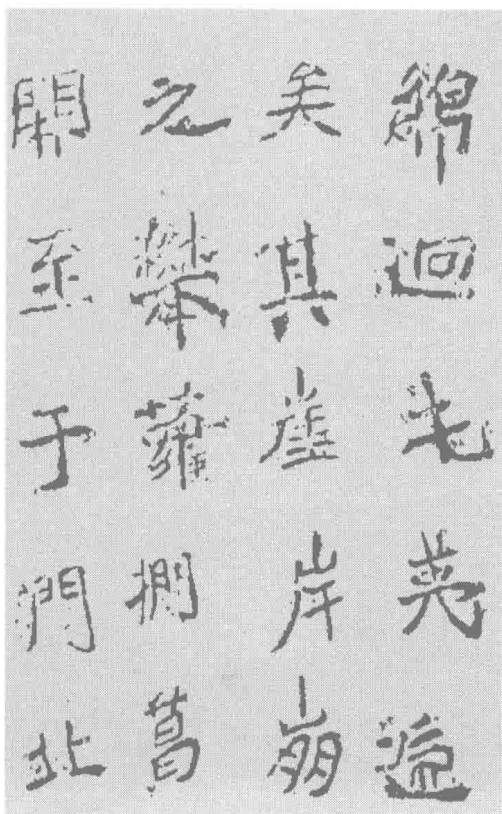 綿迴屯夷遞
矣其崖岸崩
之攀蘿捫葛
開至于門北